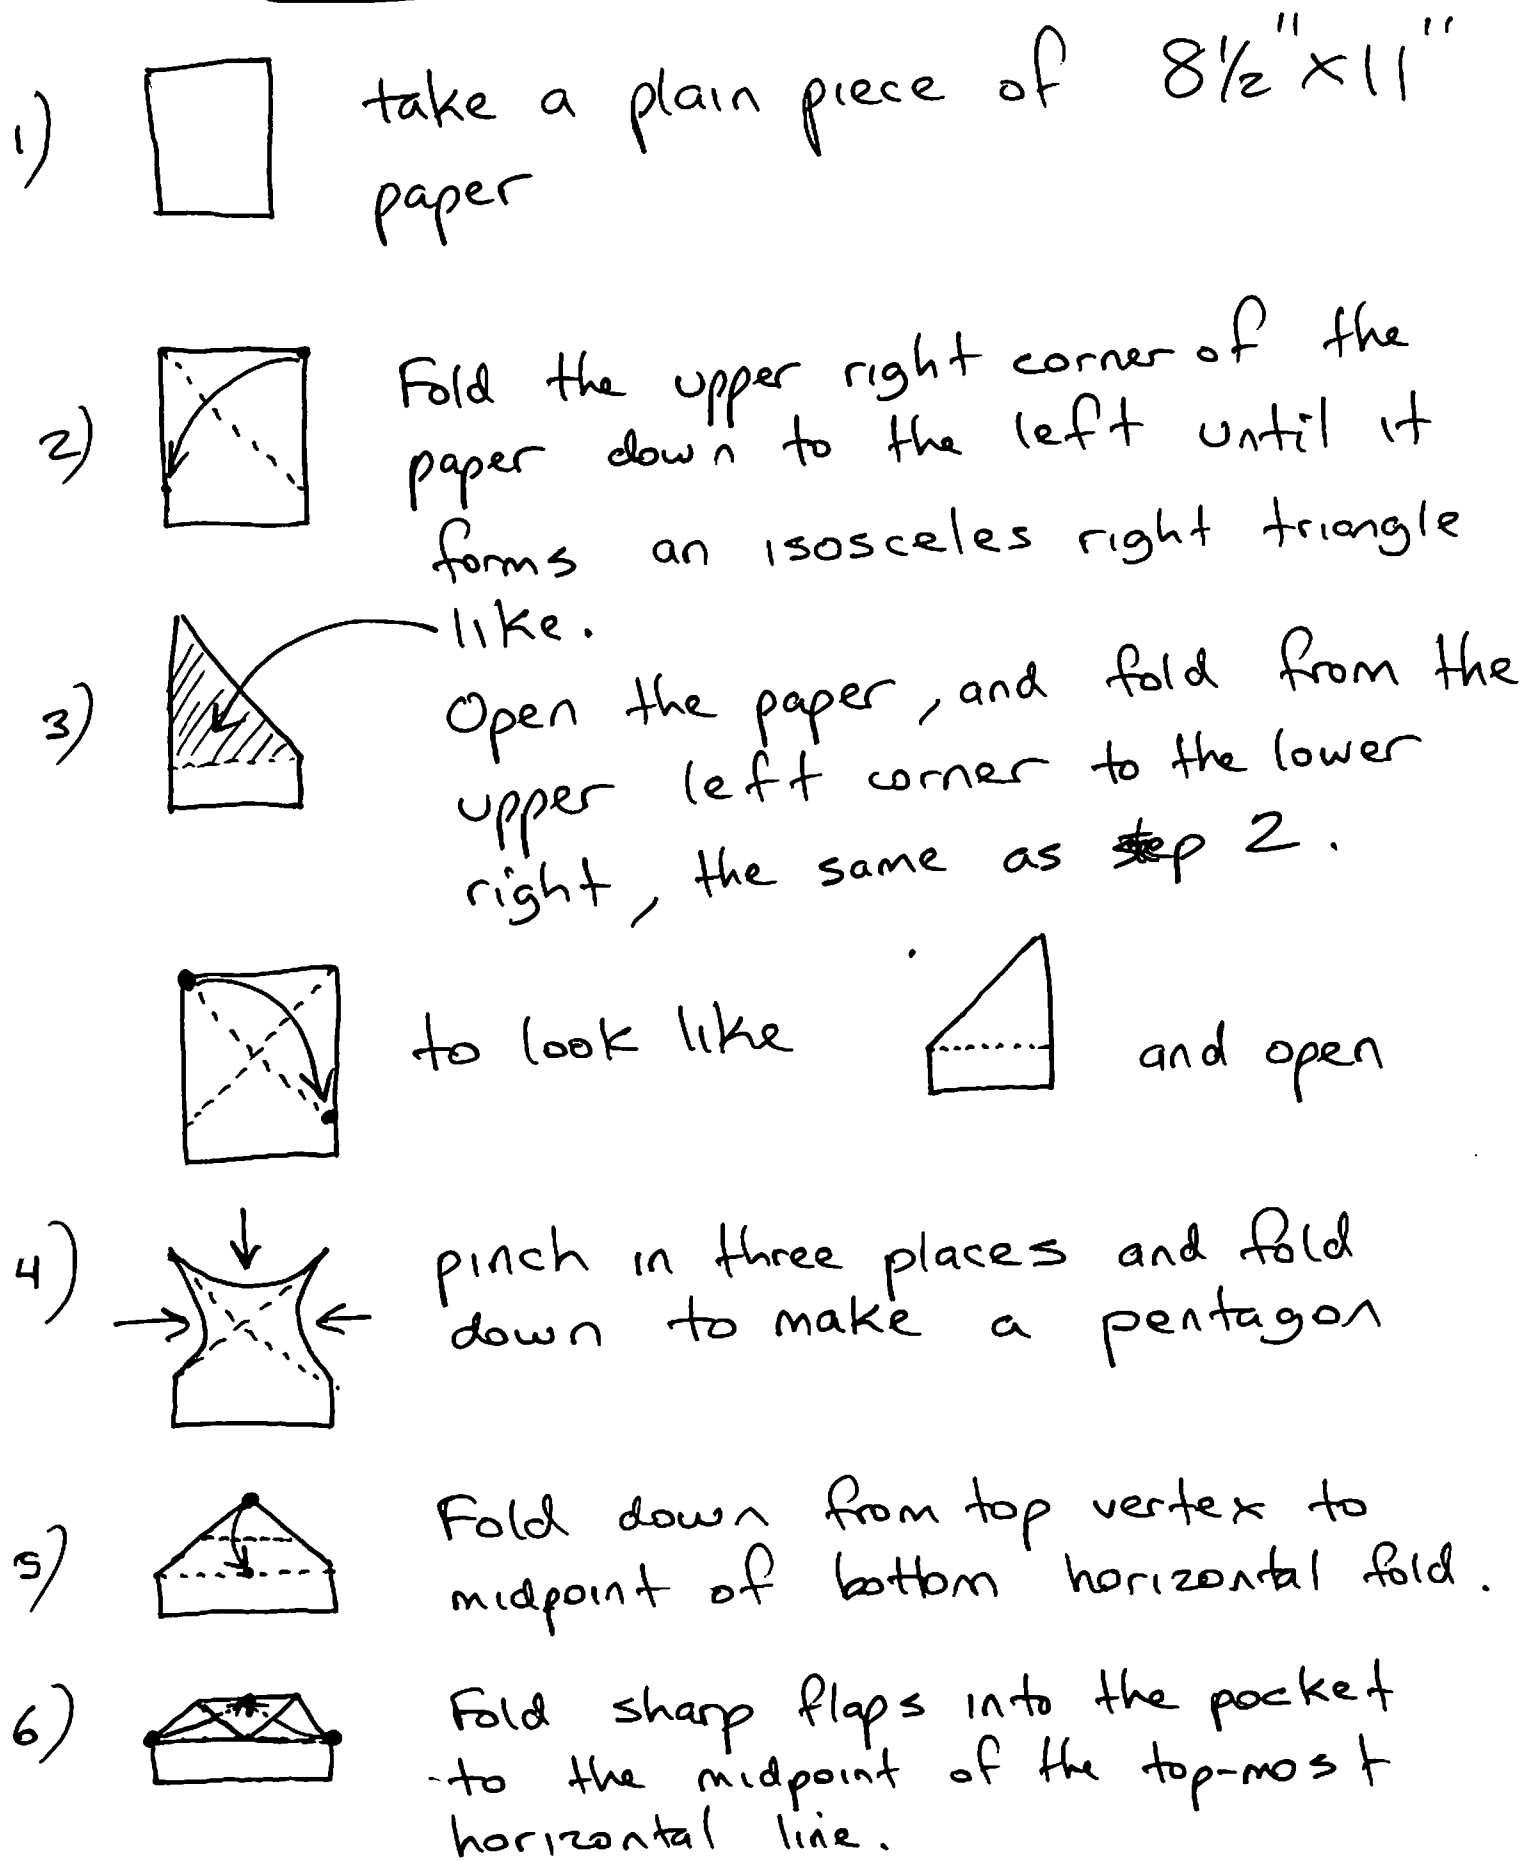 1) take a plain piece of 8½"x11"
paper
2) Fold the upper right corner of the
paper down to the left until it
forms an isosceles right triangle
like.
3) Open the paper, and fold from the
upper left corner to the lower
right, the same as step 2.
to look like and open
4) pinch in three places and fold
down to make a pentagon
5) Fold down from top vertex to
midpoint of bottom horizontal fold.
6) Fold sharp flaps into the pocket
to the midpoint of the top-most
horizontal line.